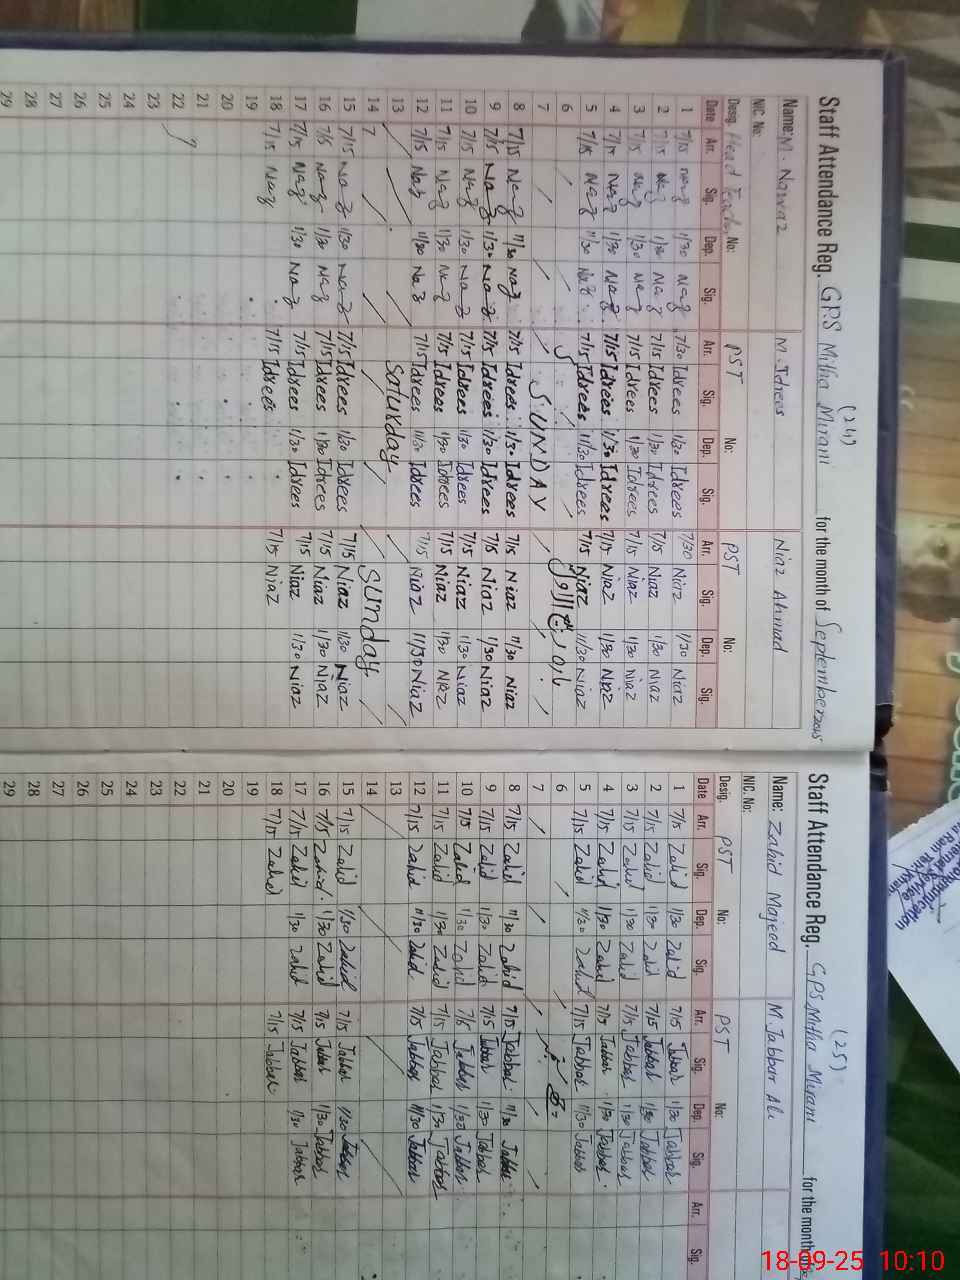 Staff Attendance Reg. GPS Mitha Mirani (24) for the month of September 2025
Name: M. Nawaz M. Idrees Niaz Ahmad
NIC. No:
Desig. Head Teacher No: PST No: PST No:
Date Arr. Sig. Dep. Sig. Arr. Sig. Dep. Sig. Arr. Sig. Dep. Sig.
1 7/15 Naz 1/30 Naz 7/30 Idrees 1/30 Idrees 7/30 Niaz 1/30 Niaz
2 7/15 Naz 1/30 Naz 7/15 Idrees 1/30 Idrees 7/15 Niaz 1/30 Niaz
3 7/15 Naz 1/30 Naz 7/15 Idrees 1/30 Idrees 7/15 Niaz 1/30 Niaz
4 7/15 Naz 1/30 Naz 7/15 Idrees 1/30 Idrees 7/15 Niaz 1/30 Niaz
5 7/15 Naz 11/30 Naz 7/15 Idrees 11/30 Idrees 7/15 Niaz 11/30 Niaz
6
7 SUNDAY
8 7/15 Naz 11/30 Naz 7/15 Idrees 11/30 Idrees 7/15 Niaz 11/30 Niaz
9 7/15 Naz 1/30 Naz 7/15 Idrees 1/30 Idrees 7/15 Niaz 1/30 Niaz
10 7/15 Naz 1/30 Naz 7/15 Idrees 1/30 Idrees 7/15 Niaz 1/30 Niaz
11 7/15 Naz 1/30 Naz 7/15 Idrees 1/30 Idrees 7/15 Niaz 1/30 Niaz
12 7/15 Naz 11/30 Naz 7/15 Idrees 11/30 Idrees 7/15 Niaz 11/30 Niaz
13 Saturday
14 7 Sunday
15 7/15 Naz 1/30 Naz 7/15 Idrees 1/30 Idrees 7/15 Niaz 1/30 Niaz
16 7/5 Naz 1/30 Naz 7/15 Idrees 1/30 Idrees 7/15 Niaz 1/30 Niaz
17 7/15 Naz 1/30 Naz 7/15 Idrees 1/30 Idrees 7/15 Niaz 1/30 Niaz
18 7/15 Naz 7/15 Idrees 7/15 Niaz
19
20
21
22
23
24
25
26
27
28
29
Staff Attendance Reg. GPS Mitha Mirani (25) for the month
Name: Zahid Majeed M Jabbar Ali
NIC. No:
Desig. PST No: PST No:
Date Arr. Sig. Dep. Sig. Arr. Sig. Dep. Sig. Arr. Sig.
1 7/15 Zahid 1/30 Zahid 7/15 Jabbar 1/30 Jabbar
2 7/15 Zahid 1/30 Zahid 7/15 Jabbar 1/30 Jabbar
3 7/15 Zahid 1/30 Zahid 7/15 Jabbar 1/30 Jabbar
4 7/15 Zahid 1/30 Zahid 7/15 Jabbar 1/30 Jabbar
5 7/15 Zahid 11/30 Zahid 7/15 Jabbar 11/30 Jabbar
6
7
8 7/15 Zahid 11/30 Zahid 7/15 Jabbar 11/30 Jabbar
9 7/15 Zahid 1/30 Zahid 7/15 Jabbar 1/30 Jabbar
10 7/15 Zahid 1/30 Zahid 7/5 Jabbar 1/30 Jabbar
11 7/15 Zahid 1/30 Zahid 7/15 Jabbar 1/30 Jabbar
12 7/15 Zahid 11/30 Zahid 7/15 Jabbar 11/30 Jabbar
13
14
15 7/15 Zahid 1/30 Zahid 7/15 Jabbar 1/30 Jabbar
16 7/15 Zahid 1/30 Zahid 7/15 Jabbar 1/30 Jabbar
17 7/15 Zahid 1/30 Zahid 7/15 Jabbar 1/30 Jabbar
18 7/15 Zahid 7/15 Jabbar
19
20
21
22
23
24
25
26
27
28
29
18-09-25 10:10